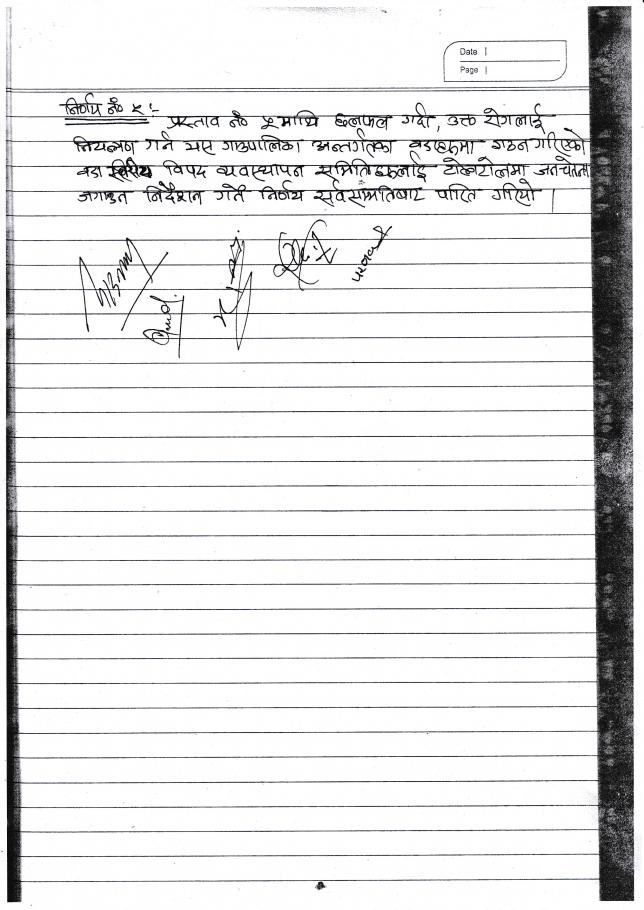 Date |
Page |
निर्णय नं ५ :-
प्रस्ताव नं ५ माथि छलफल गर्दा, उक्त रोगलाई
नियन्त्रण गर्न यस गाउपालिका अन्तर्गतका वडाहरुमा गठन गरिएको
वडा स्तरिय विपद व्यवस्थापन समितिहरुलाई टोलटोलमा जनचेतना
जगाउन निर्देशन गर्ने निर्णय सर्वसम्मतिबाट पारित गरियो ।